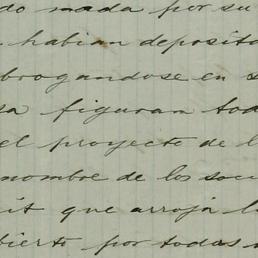 do nada por su
habian deposito
brogandose en s
sa figuran tod
el proyecto de l
nombre de los soci
it que arroja l
bierto por todas